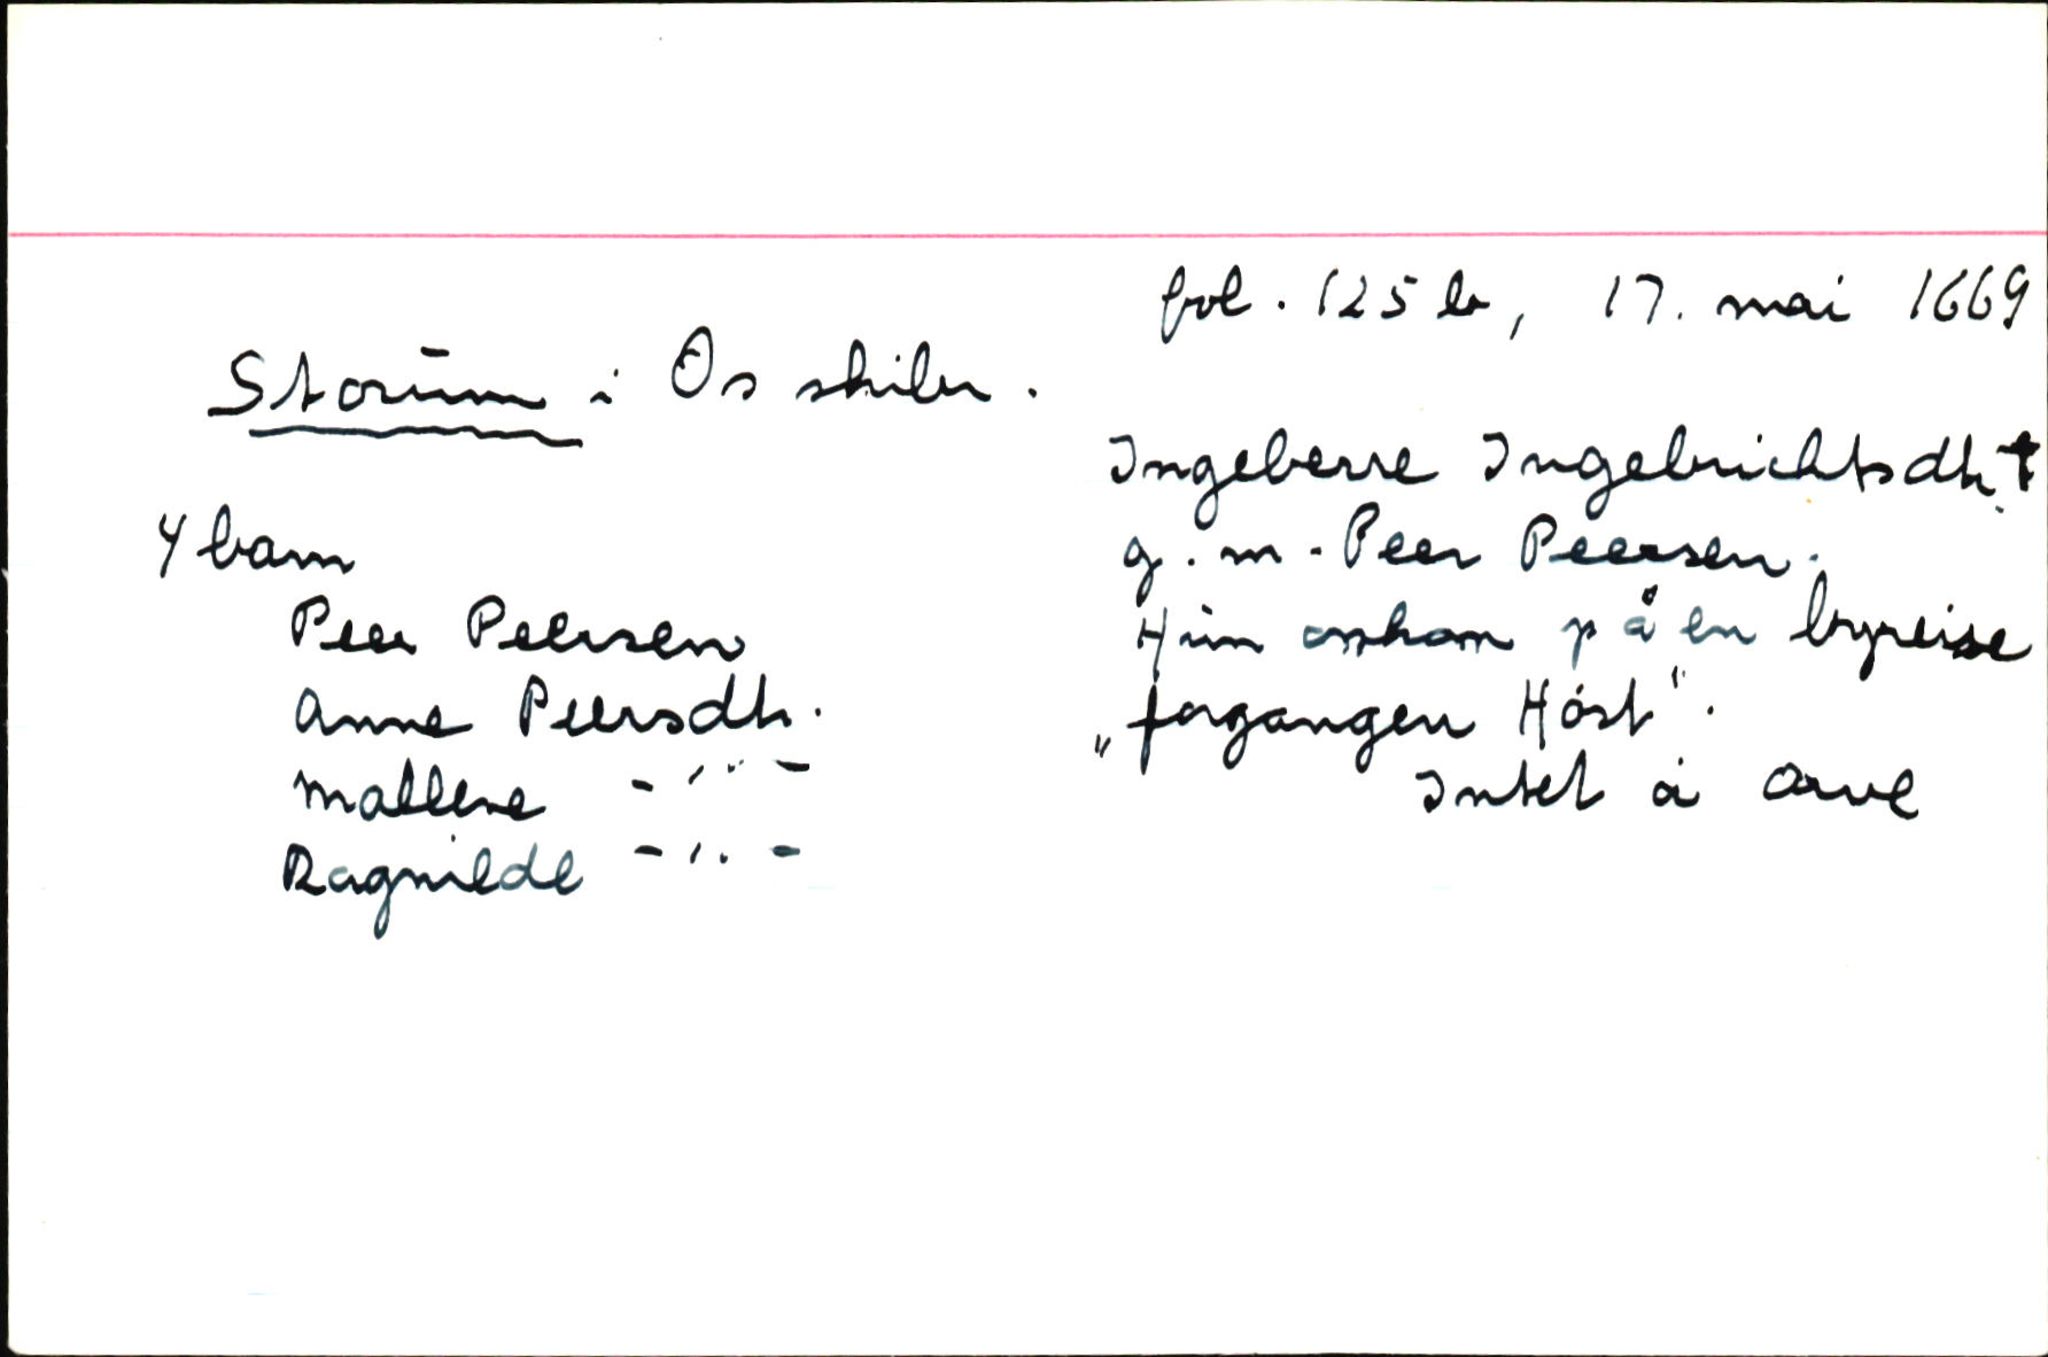 fol. 125 b, 17. mai 1669
Storum i Os skibr.
Ingeberre Ingebrichtsdtr. †
g.m. Peer Peersen.
Hun omkom på en byreise
„forgangen Høst".
Intet å arve
4 barn
Peer Peersen
Anne Peersdtr.
Mallene -"-
Ragnilde -"-